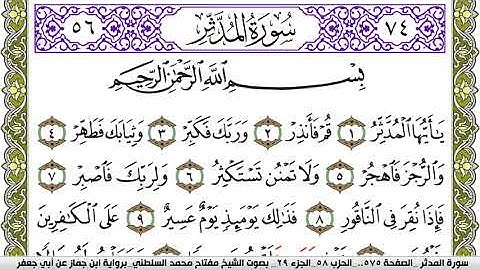 ٧٤ سُورَةُ المُدَّثِّر ٥٦
بِسْمِ اللَّهِ الرَّحْمَٰنِ الرَّحِيمِ
يَٰٓأَيُّهَا ٱلْمُدَّثِّرُ ١ قُمْ فَأَنذِرْ ٢ وَرَبَّكَ فَكَبِّرْ ٣ وَثِيَابَكَ فَطَهِّرْ ٤
وَٱلرُّجْزَ فَٱهْجُرْ ٥ وَلَا تَمْنُن تَسْتَكْثِرُ ٦ وَلِرَبِّكَ فَٱصْبِرْ ٧
فَإِذَا نُقِرَ فِي ٱلنَّاقُورِ ٨ فَذَٰلِكَ يَوْمَئِذٍ يَوْمٌ عَسِيرٌ ٩ عَلَى ٱلْكَٰفِرِينَ
سورة المدثر_ الصفحة ٥٧٥.. الحزب ٥٨_ الجزء ٢٩_ بصوت الشيخ مفتاح محمد السلطني_ برواية ابن جماز عن أبي جعفر